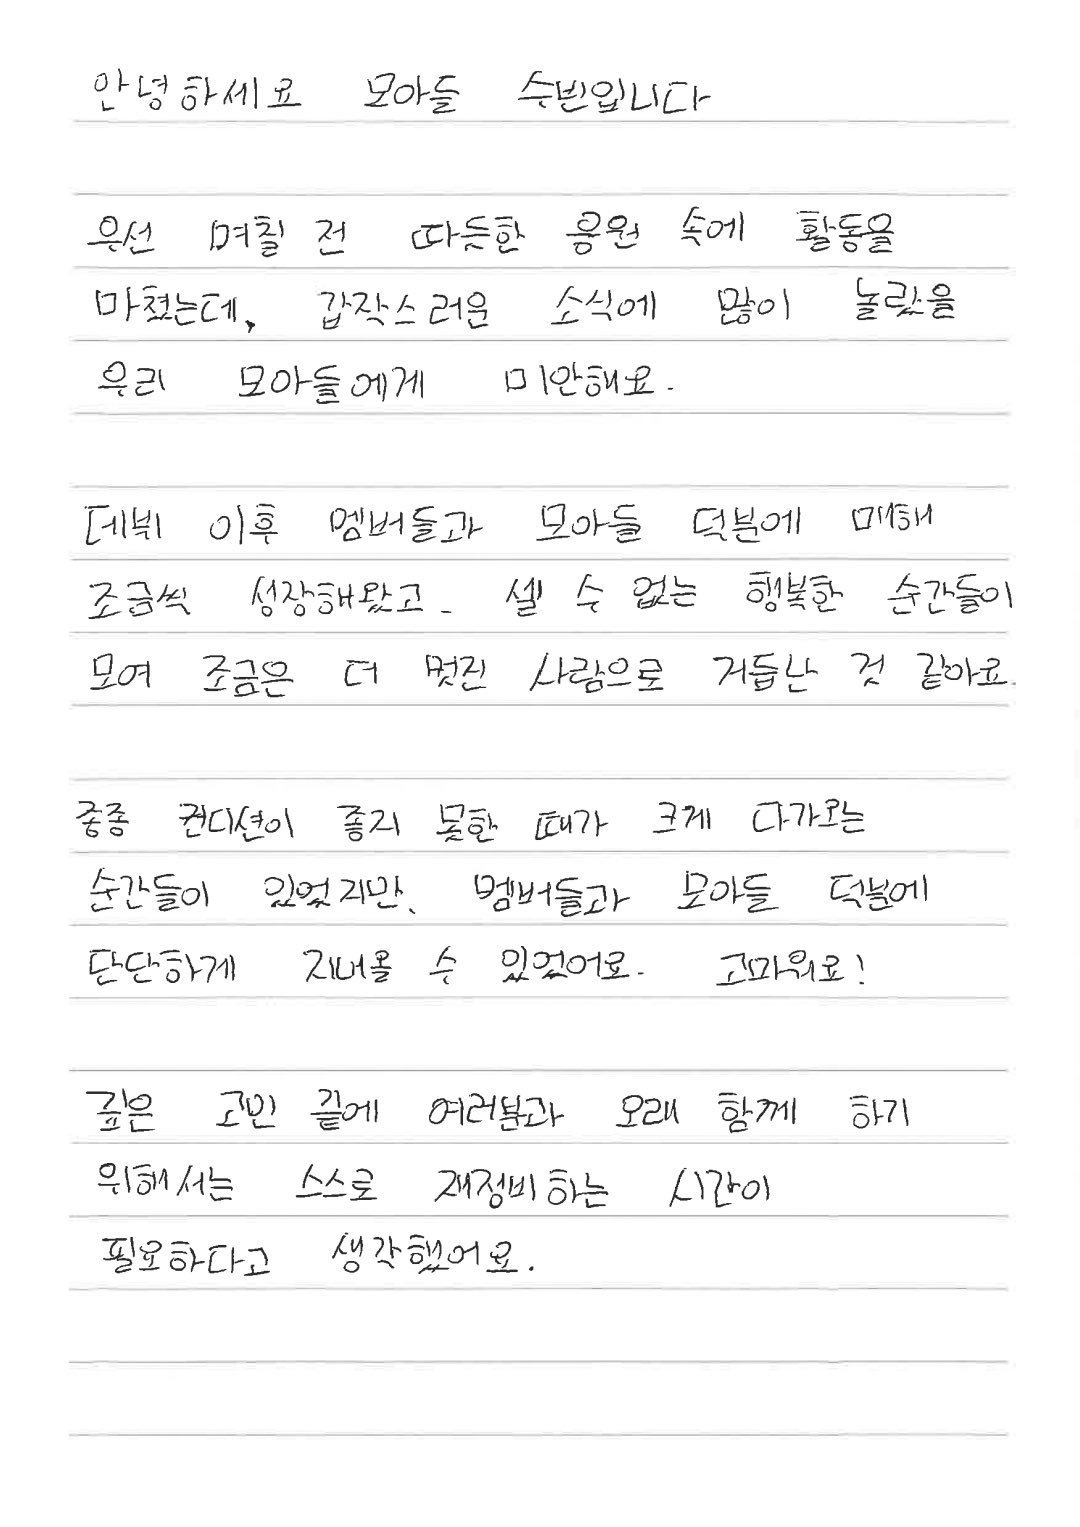 안녕하세요 모아들 수빈입니다
우선 며칠 전 따듯한 응원 속에 활동을
마쳤는데, 갑작스러운 소식에 많이 놀랐을
우리 모아들에게 미안해요.
데뷔 이후 멤버들과 모아들 덕분에 매해
조금씩 성장해왔고. 셀 수 없는 행복한 순간들이
모여 조금은 더 멋진 사람으로 거듭난 것 같아요.
종종 컨디션이 좋지 못한 때가 크게 다가오는
순간들이 있었지만, 멤버들과 모아들 덕분에
단단하게 지내올 수 있었어요. 고마워요!
깊은 고민 끝에 여러분과 오래 함께 하기
위해서는 스스로 재정비하는 시간이
필요하다고 생각했어요.